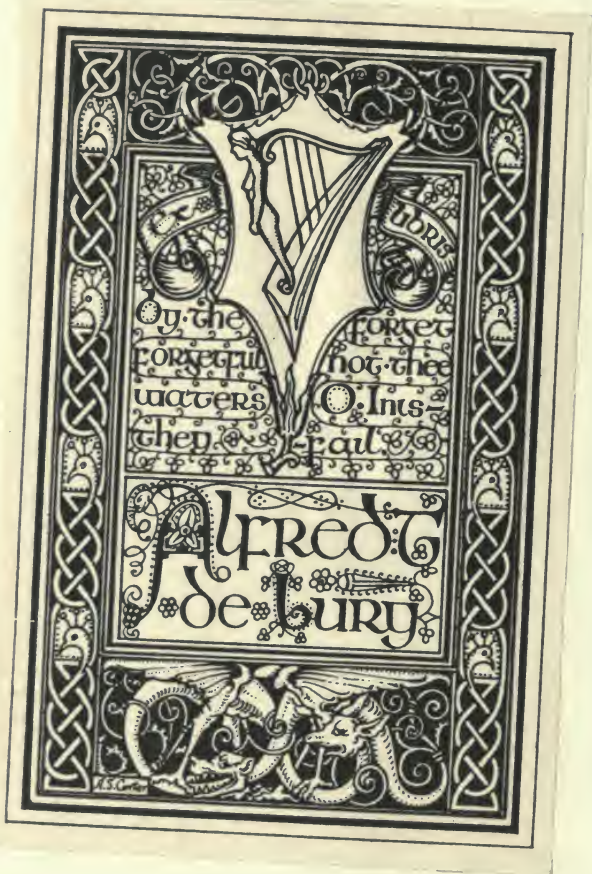 Ex
Libris
By·the
forgetful
waters
they.
forget
not·thee
O·Inis-
-fail.
Alfred·T
·de·bury
A.S. Carter